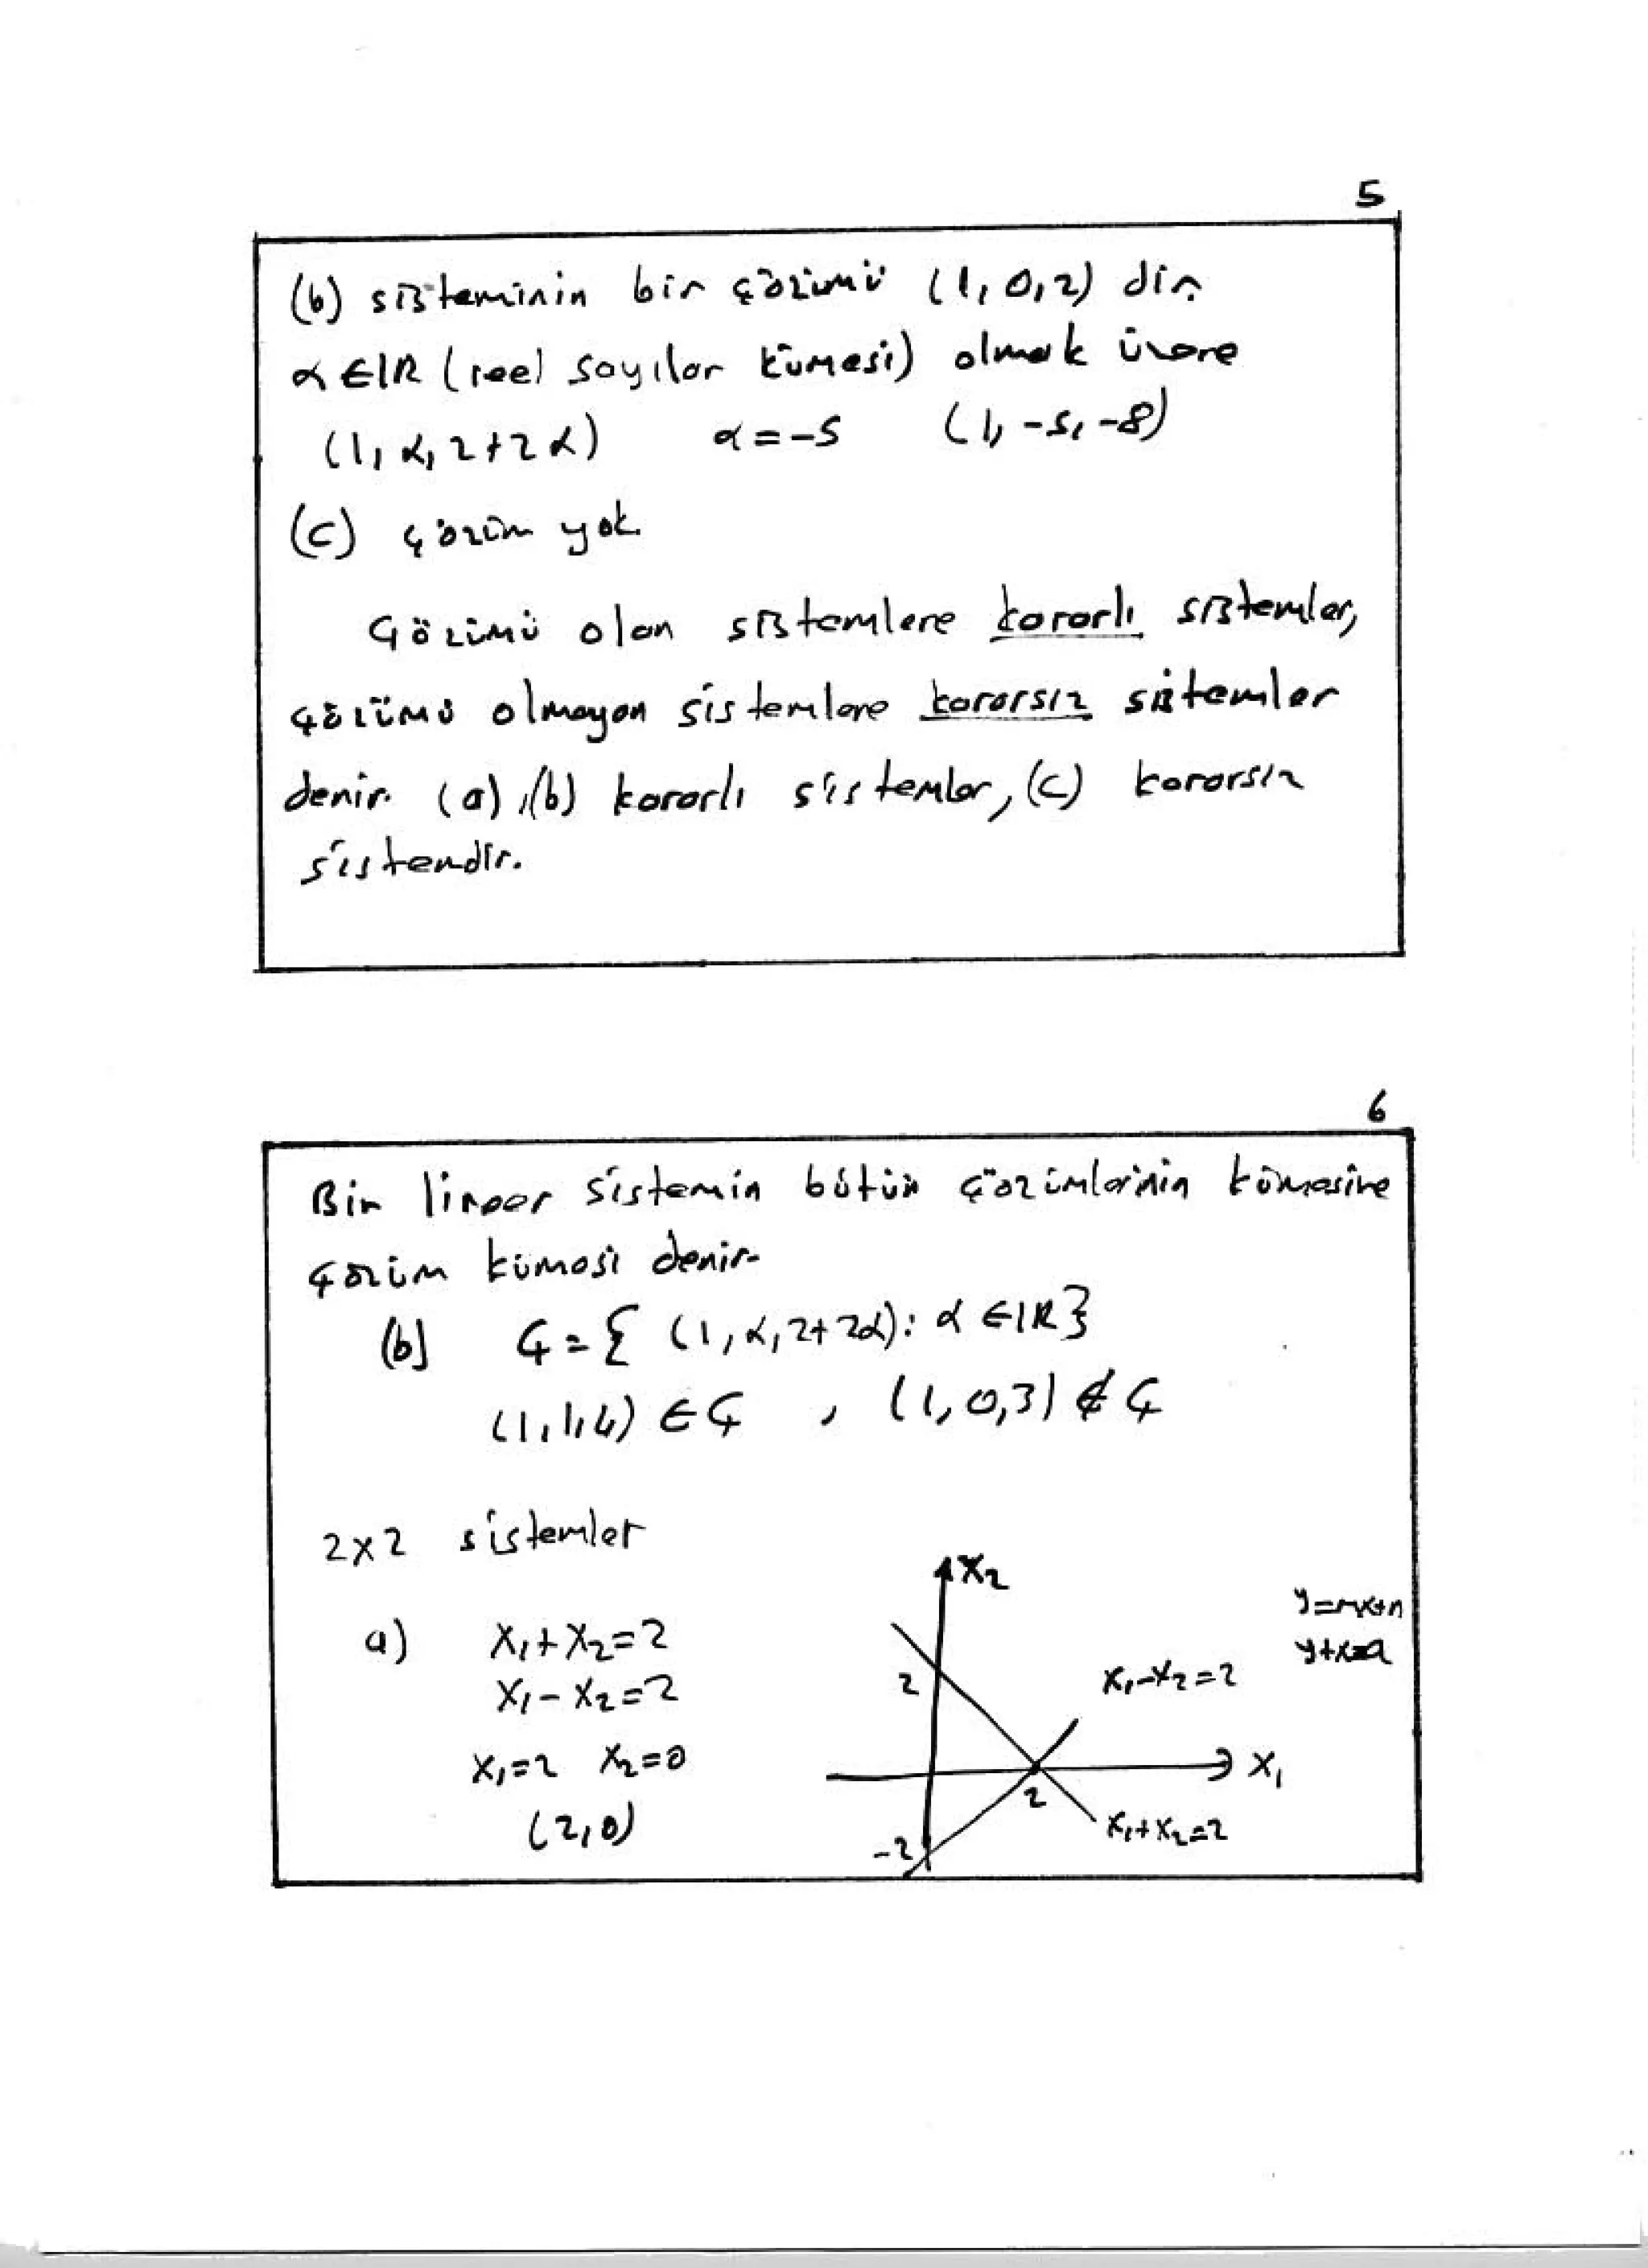 5
(b) sisteminin bir çözümü (1, 0, 2) dir.
α ∈ IR (reel sayılar kümesi) olmak üzere
(1, α, 2+2α)   α = -5   (1, -5, -8)
(c) çözüm yok
Çözümü olan sistemlere kararlı sistemler,
çözümü olmayan sistemlere kararsız sistemler
denir. (a), (b) kararlı sistemler, (c) kararsız
sistemdir.
6
Bir lineer sistemin bütün çözümlerinin kümesine
çözüm kümesi denir.
(b) Ç = { (1, α, 2+2α) : α ∈ IR }
(1, 1, 4) ∈ Ç , (1, 0, 3) ∉ Ç
2x2 sistemler
a) x₁ + x₂ = 2
x₁ - x₂ = 2
x₁ = 2 x₂ = 0
(2, 0)
x₂
y = mx+n
y+x=a
2
x₁ - x₂ = 2
x₁
2
x₁ + x₂ = 2
-2